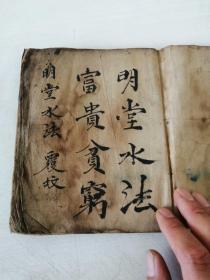 明堂水法
富貴貧窮
明堂水法 覆校